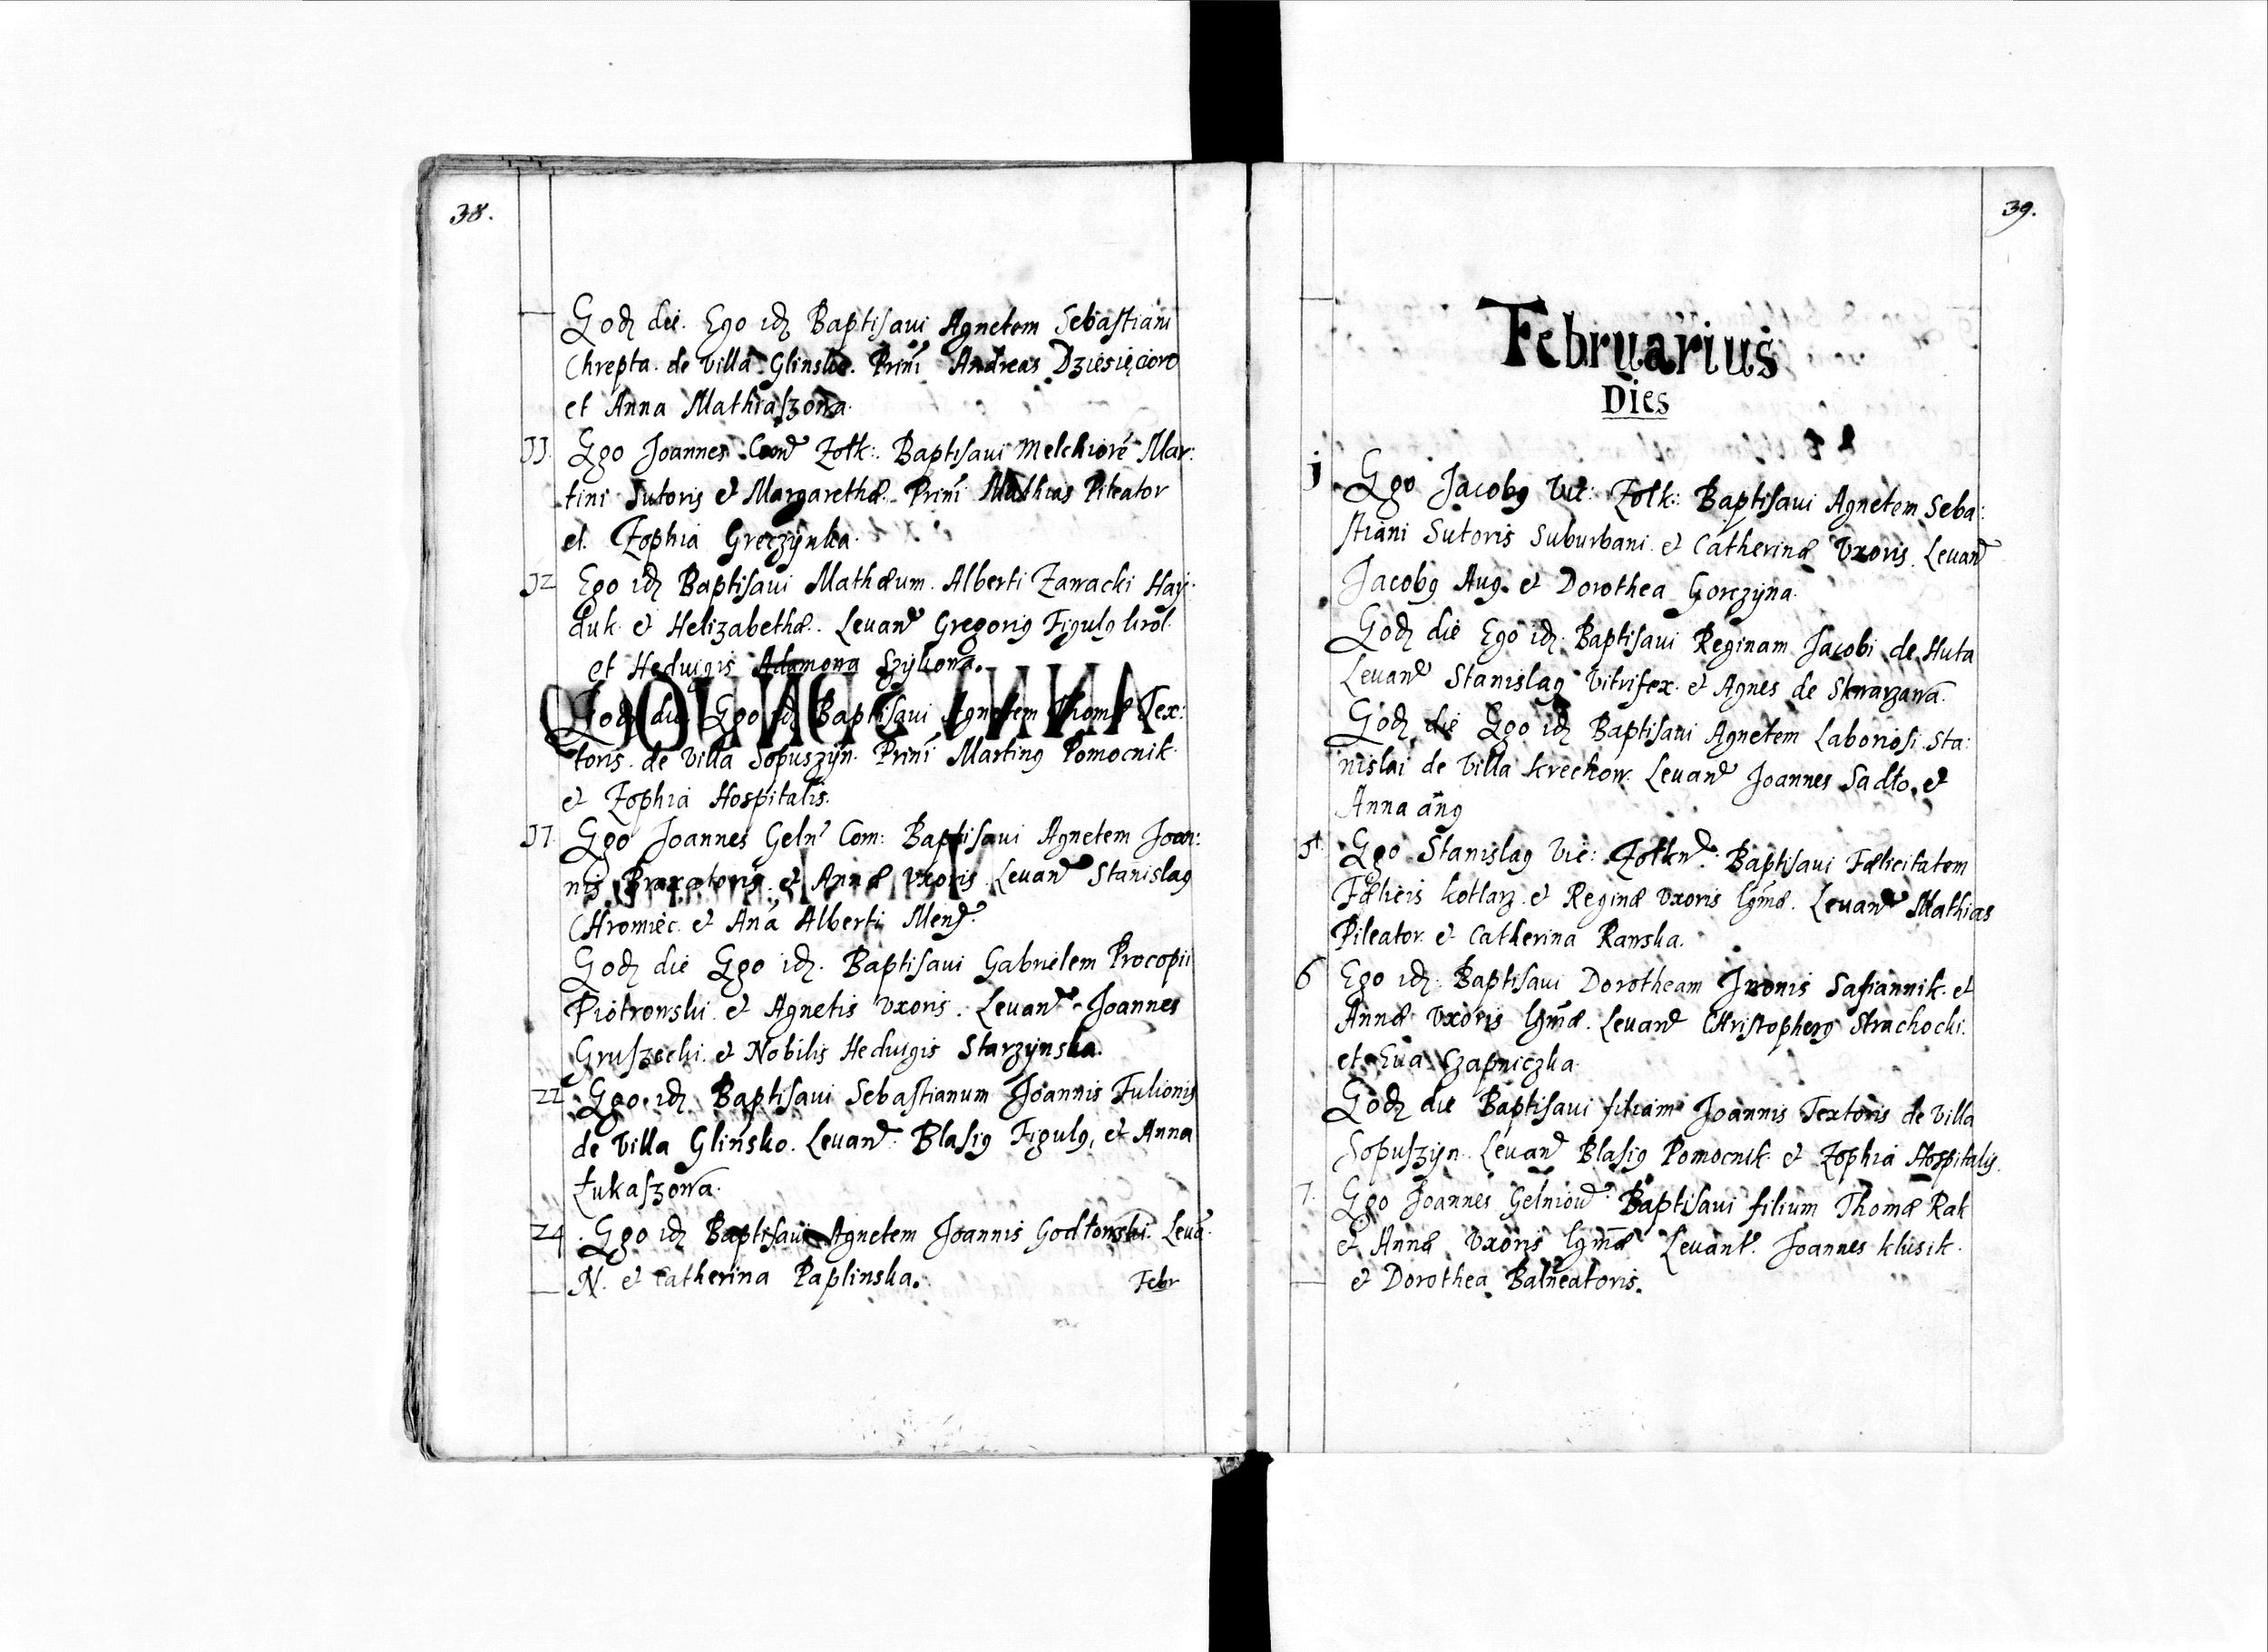 38.
Eodȝ die. Ego idȝ Baptisaui Agnetem Sebastiani
Chrepta. de villa Glinsko. Prini Andreas Dziesięcioro
et Anna Mathiaszowa.
11. Ego Joannes Żolk: Baptisaui Melchiorē Mar:
tini Sutoris et Margarethæ. Prini Mathias Pileator
et Zophia Greczynka.
12 Ego idȝ Baptisaui Mathæum. Alberti Zawacki Hay:
duk. et Helizabethæ. Leuand Gregorius Figulus krol.
et Heduigis Adamowa Szylowa.
Eodȝ die Ego idȝ Baptisaui Agnetem Thomæ Tex:
toris. de villa Sopuszyn. Prini Martinus Pomocnik.
et Zophia Hospitalis.
17. Ego Joannes Geln Com: Baptisaui Agnetem Joan:
nis Braxatoris et Annæ vxoris. Leuand Stanislaus
CHromiec. et Anā Alberti Mend.
Eodȝ die Ego idȝ. Baptisaui Gabrielem Procopii
Piotrowski. et Agnetis vxoris. Leuand Joannes
Gruszecki. et Nobilis Heduigis Starzynska.
22 Ego idȝ Baptisaui Sebastianum Joannis Fulionis
de villa Glinsko. Leuand: Blasius Figulus, et Anna
Łukaszowa.
24. Ego idȝ Baptisaui Agnetem Joannis Godłowski. Leuā.
N. et Catherina Paplinska.
Febr
39.
Februarius
Dies
j. Ego Jacobus Vic: Żolk: Baptisaui Agnetem Seba:
stiani Sutoris Suburbani et Catherinæ Vxoris. Leuand
Jacobus Aug. et Dorothea Gorczyna.
Eodȝ die Ego idȝ. Baptisaui Reginam Jacobi de Huta
Leuand Stanislaus Vitrifex. et Agnes de Skwarzawa.
Eodȝ die Ego idȝ Baptisaui Agnetem Laboriosi Sta:
nislai de Villa Krechow. Leuand Joannes Sadło, et
Anna
5. Ego Stanislaus Vic: Żolknd: Baptisaui Fælicitatem
Fælicis kotlarz. et Reginæ vxoris lgmæ. Leuand Mathias
Pileator. et Catherina Rawska.
6 Ego idȝ. Baptisaui Dorotheam Jwonis Safiannik. et
Annæ vxoris lgmæ. Leuand CHristopherus Strachocki.
et Eua Czapniczka.
Eodȝ die Baptisaui filiam Joannis Textoris de villa
Sopuszyn. Leuand Blasius Pomocnik. et Zophia Hospitalis.
7. Ego Joannes Gelniowd. Baptisaui filium Thomæ Rak
et Annæ Vxoris lgmæ Leuant. Joannes Klusik.
et Dorothea Balneatoris.